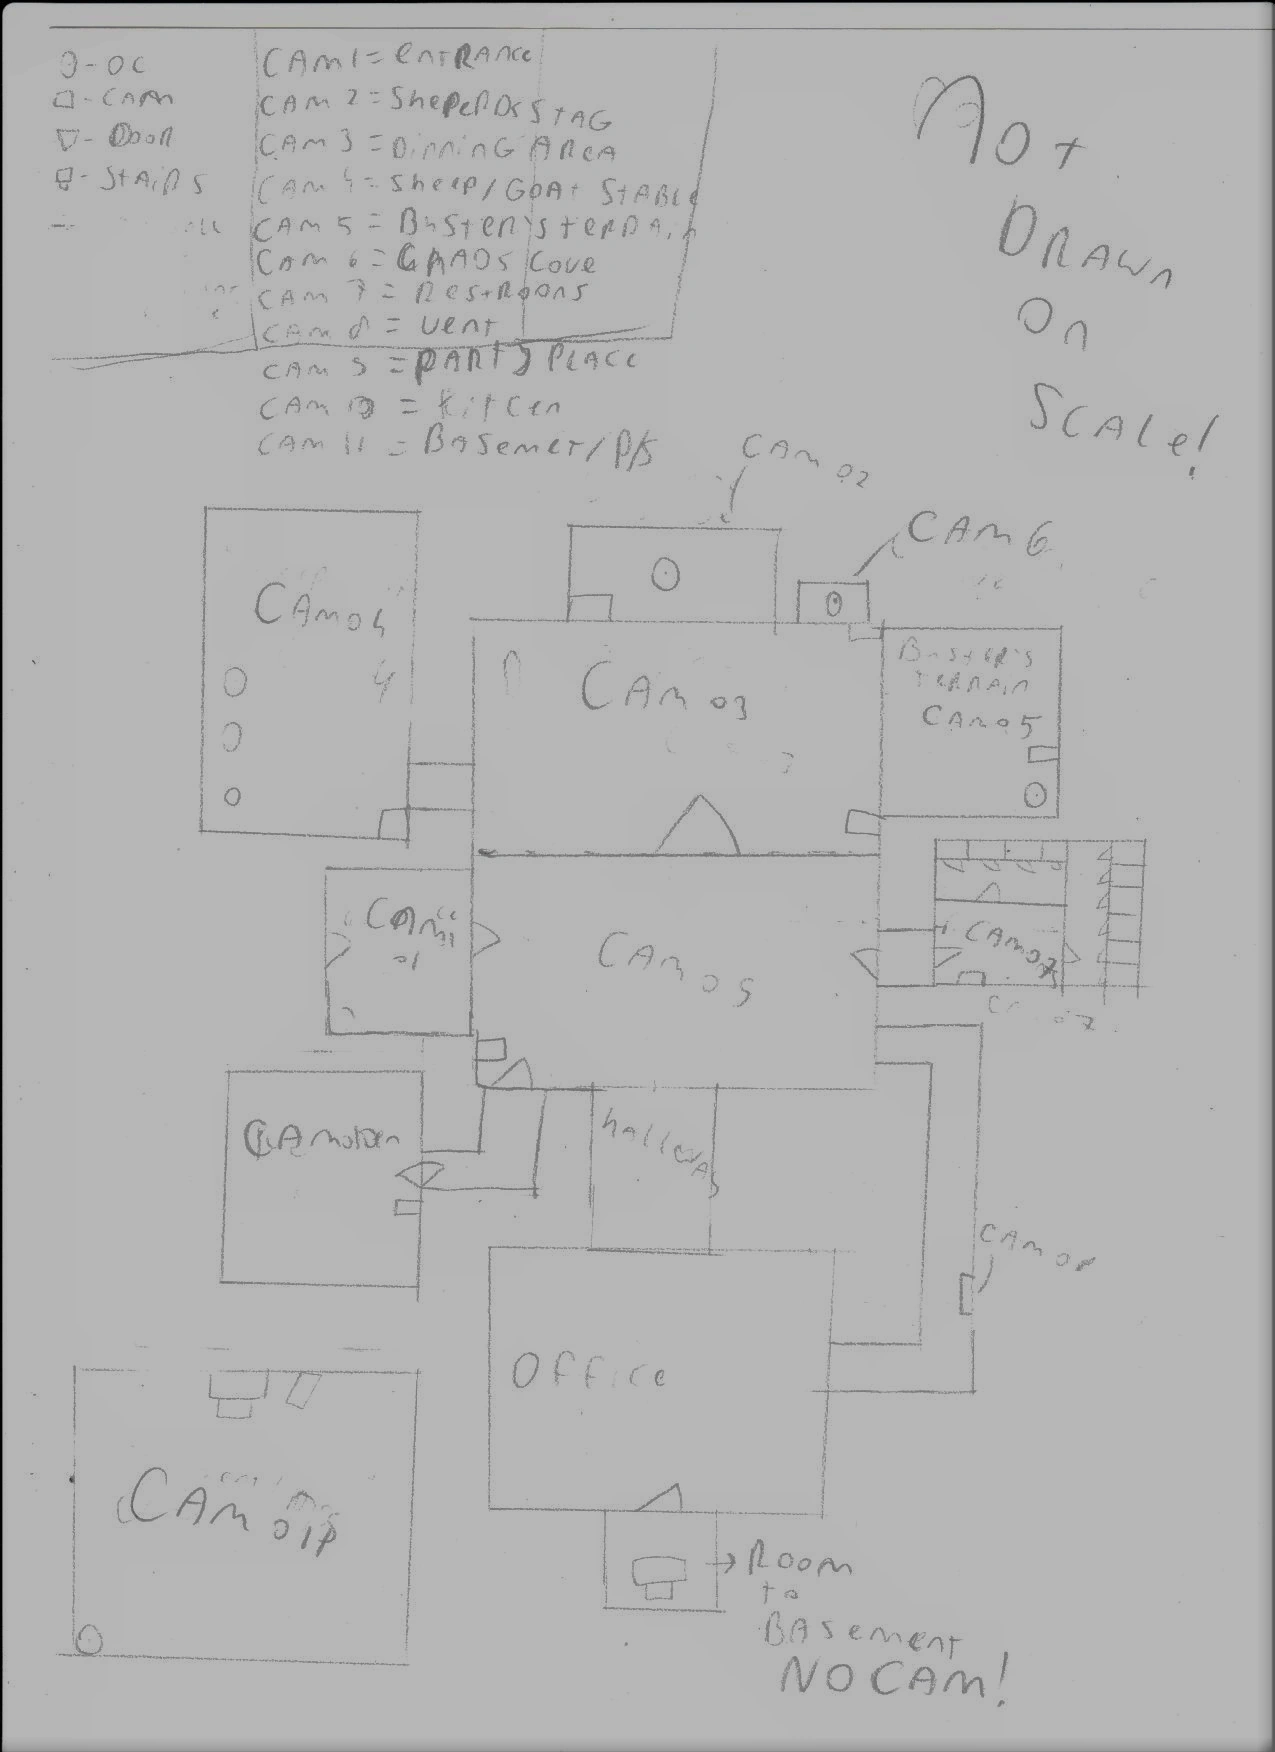 O-OC
□-CAM
▽-DOOR
-STAIRS
CAM 1 = ENTRANCE
CAM 2 = SHEPERDS STAG
CAM 3 = DINNING AREA
CAM 4 = SHEEP/GOAT STABLE
CAM 5 = BUSTER'S TERRAIN
CAM 6 = CHADS COVE
CAM 7 = RESTROOMS
CAM 8 = VENT
CAM 9 = PARTY PLACE
CAM 10 = KITCEN
CAM 11 = BASEMET/P/S
NOT
DRAWN
ON
SCALE!
CAM 02
CAM 6
CAM 04
4
CAM 03
BUSTER'S
TERRAIN
CAM 05
CAM
01
CAM 09
CAM 07
HALLWAY
CAM 08
OFFICE
CAM
ROOM
TO
BASEMENT
NO CAM!